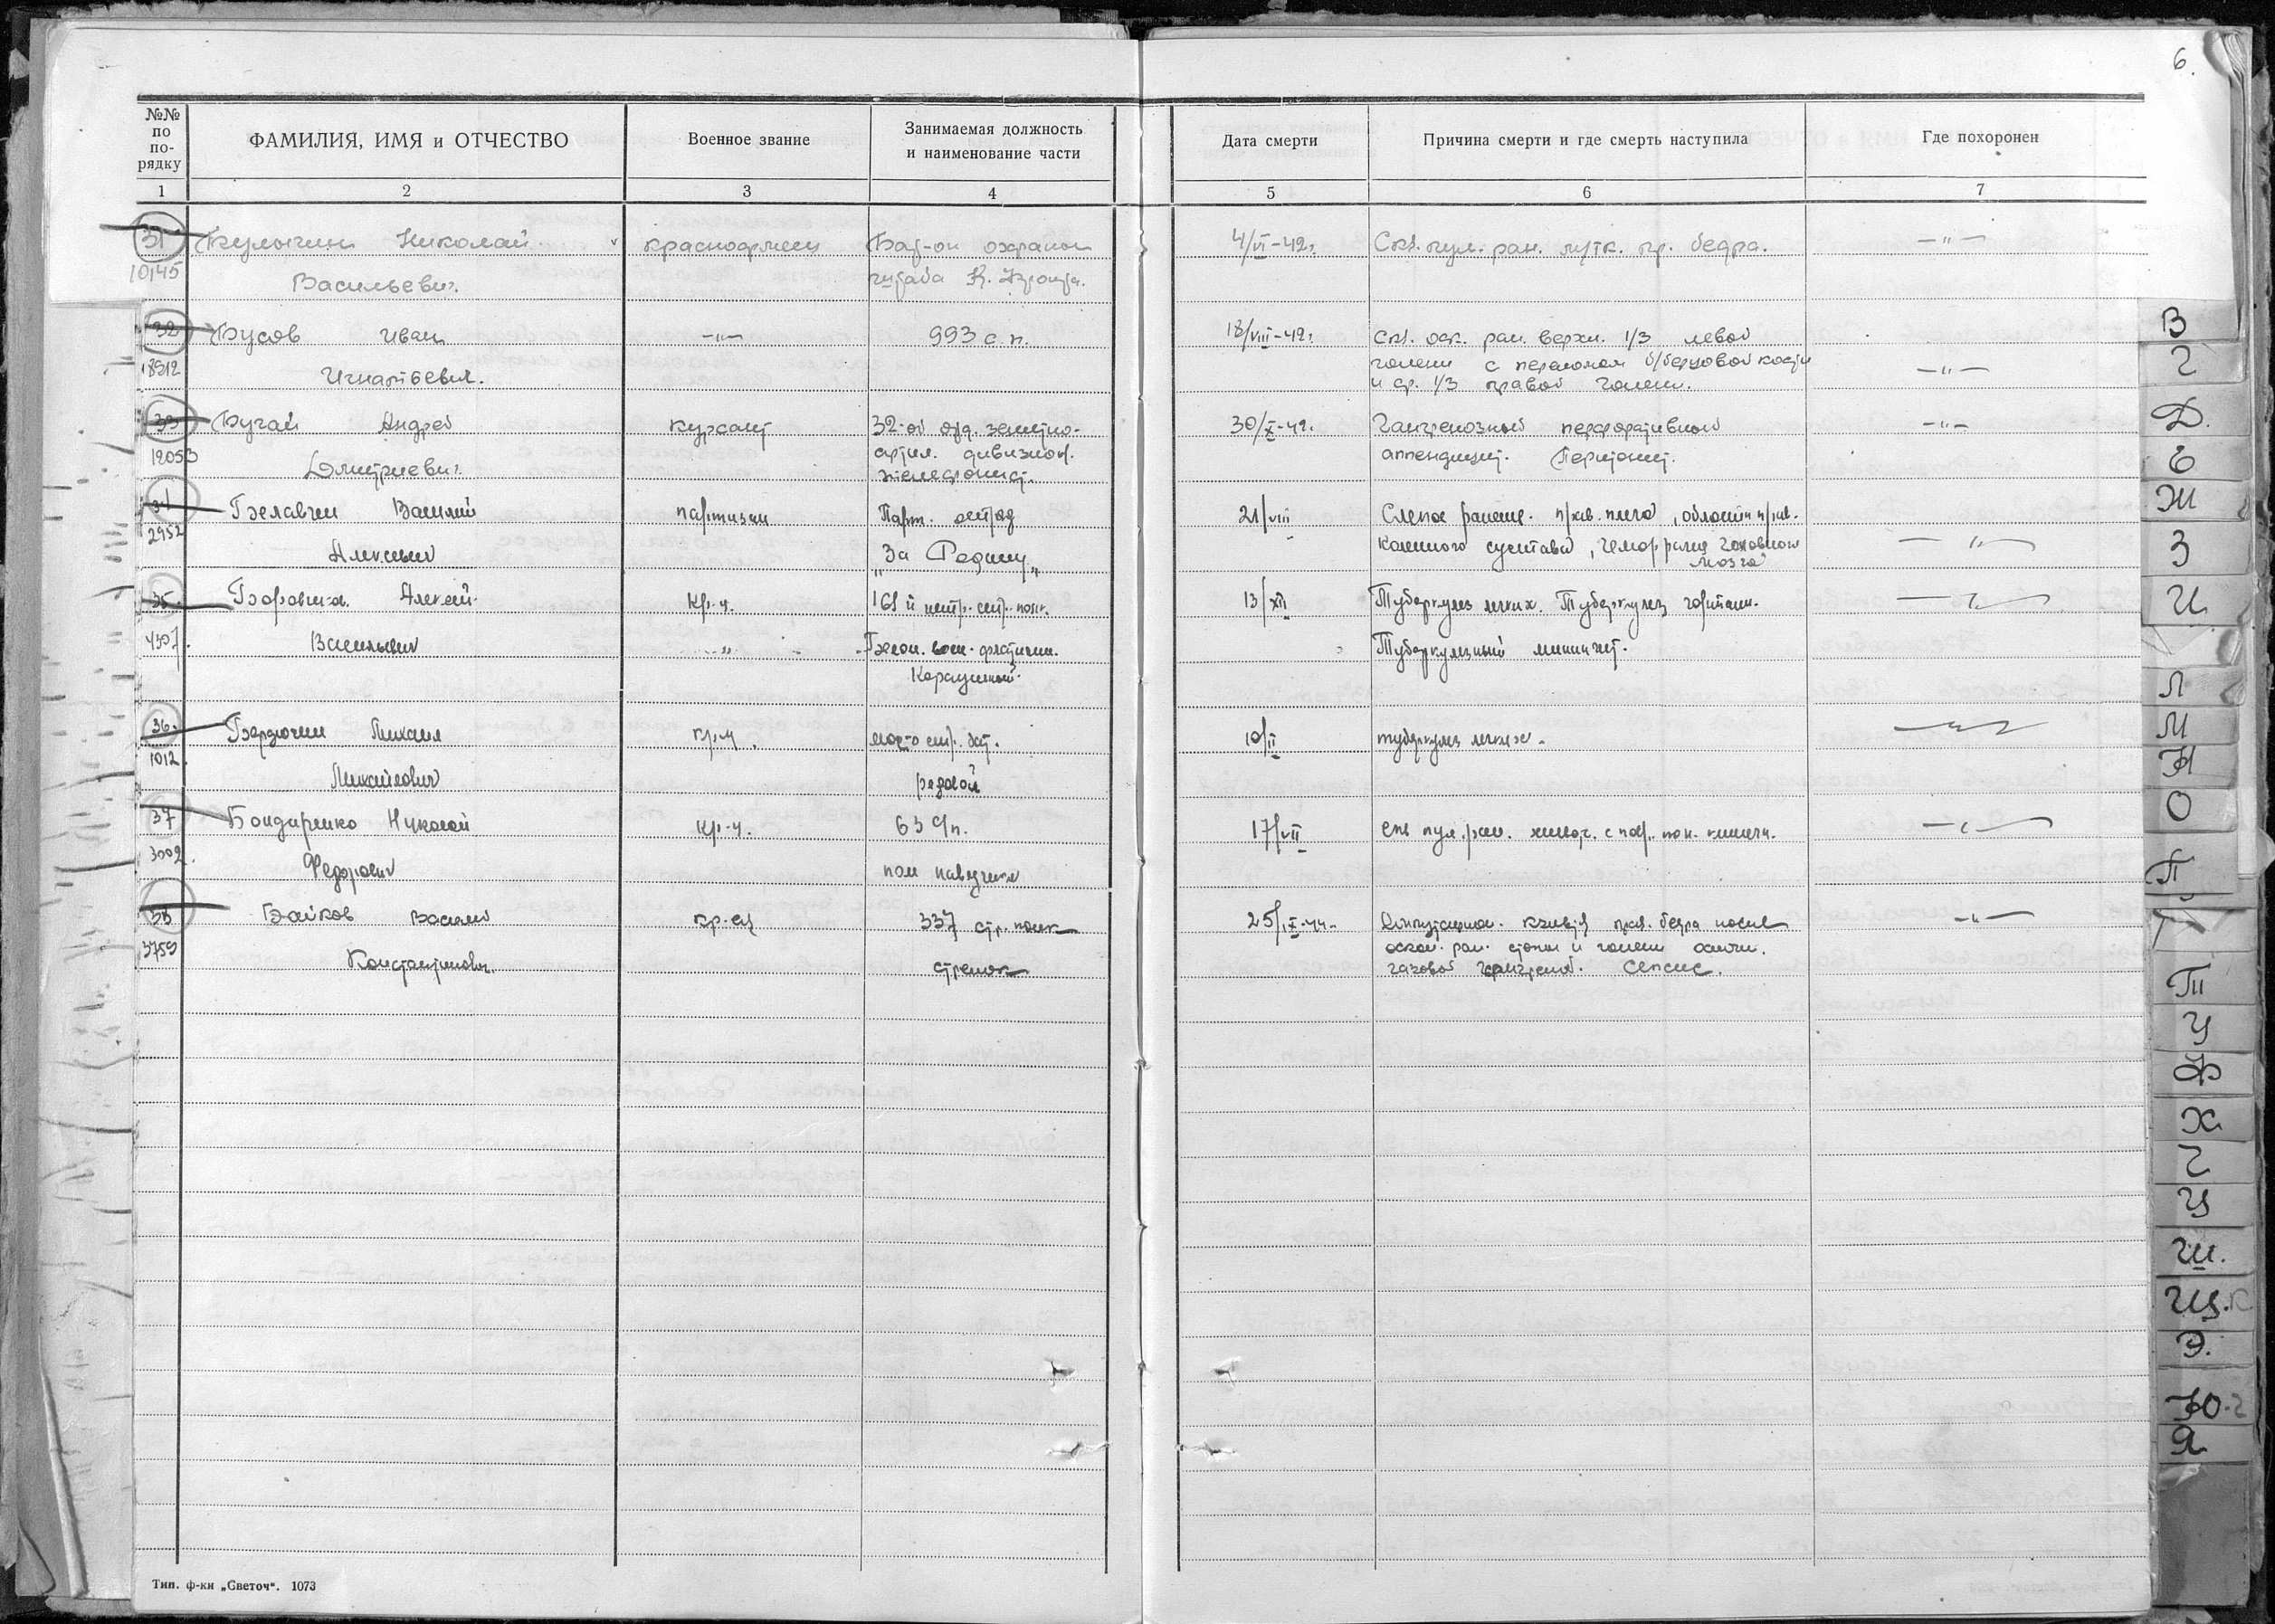 6.
№№ по по- рядку
ФАМИЛИЯ, ИМЯ и ОТЧЕСТВО
Военное звание
Занимаемая должность и наименование части
Дата смерти
Причина смерти и где смерть наступила
Где похоронен
1 2 3 4 5 6 7
31 Николай красноармеец Бат-он охраны 4/VI-42г. Скв. пул. ран. пр. бедра. —"—
10145 Васильевич. штаба К. Фронта.
32 Бусов Иван —"— 993 с.п. 18/VIII-42г. скв. оск. ран. верхн. 1/3 левой
голени с переломом б/берцовой кости
8312 Игнатьевич. и ср. 1/3 правой голени. —"—
33 Бугай Андрей курсант 32-ой отд. зенитно- 30/X-42г. Гангренозный перфоративный —"—
12053 Дмитриевич. артил. дивизион. аппендицит. Перитонит.
телефонист.
34 Василий партизан Парт. отряд 21/VIII Слепое ранение. прав. плеча, области прав.
2952 Алексеевич "За Родину" коленного сустава, геморрагия головного —"—
мозга
35. Алексей кр-ц. стр. полк. 13/XII Туберкулез легких. Туберкулез гортани. —"—
4307. Васильевич —"— Туберкулезный менингит.
Караульный.
36. Михаил кр-ц. 10/II туберкулез легких. —"—
1012. Михайлович рядовой
37 Бондаренко Николай кр-ц. 63 с/п. 17/VII пул. ран. живот. с —"—
3002. Федорович пом наводчика
38 Байков Василий кр-ец 337 стр. полк 25/IX-44. прав. бедра после —"—
оскол. ран. стопы и голени
3759 Константинович. стрелок газовой гангреной. Сепсис.
В
Г
Д.
Е
Ж
З
И
Л
М
Н
О
П
Т
У
Ф
Х
Ц
Ш.
Щ.
Э.
Ю
Я
Тип. ф-ки „Светоч“. 1073